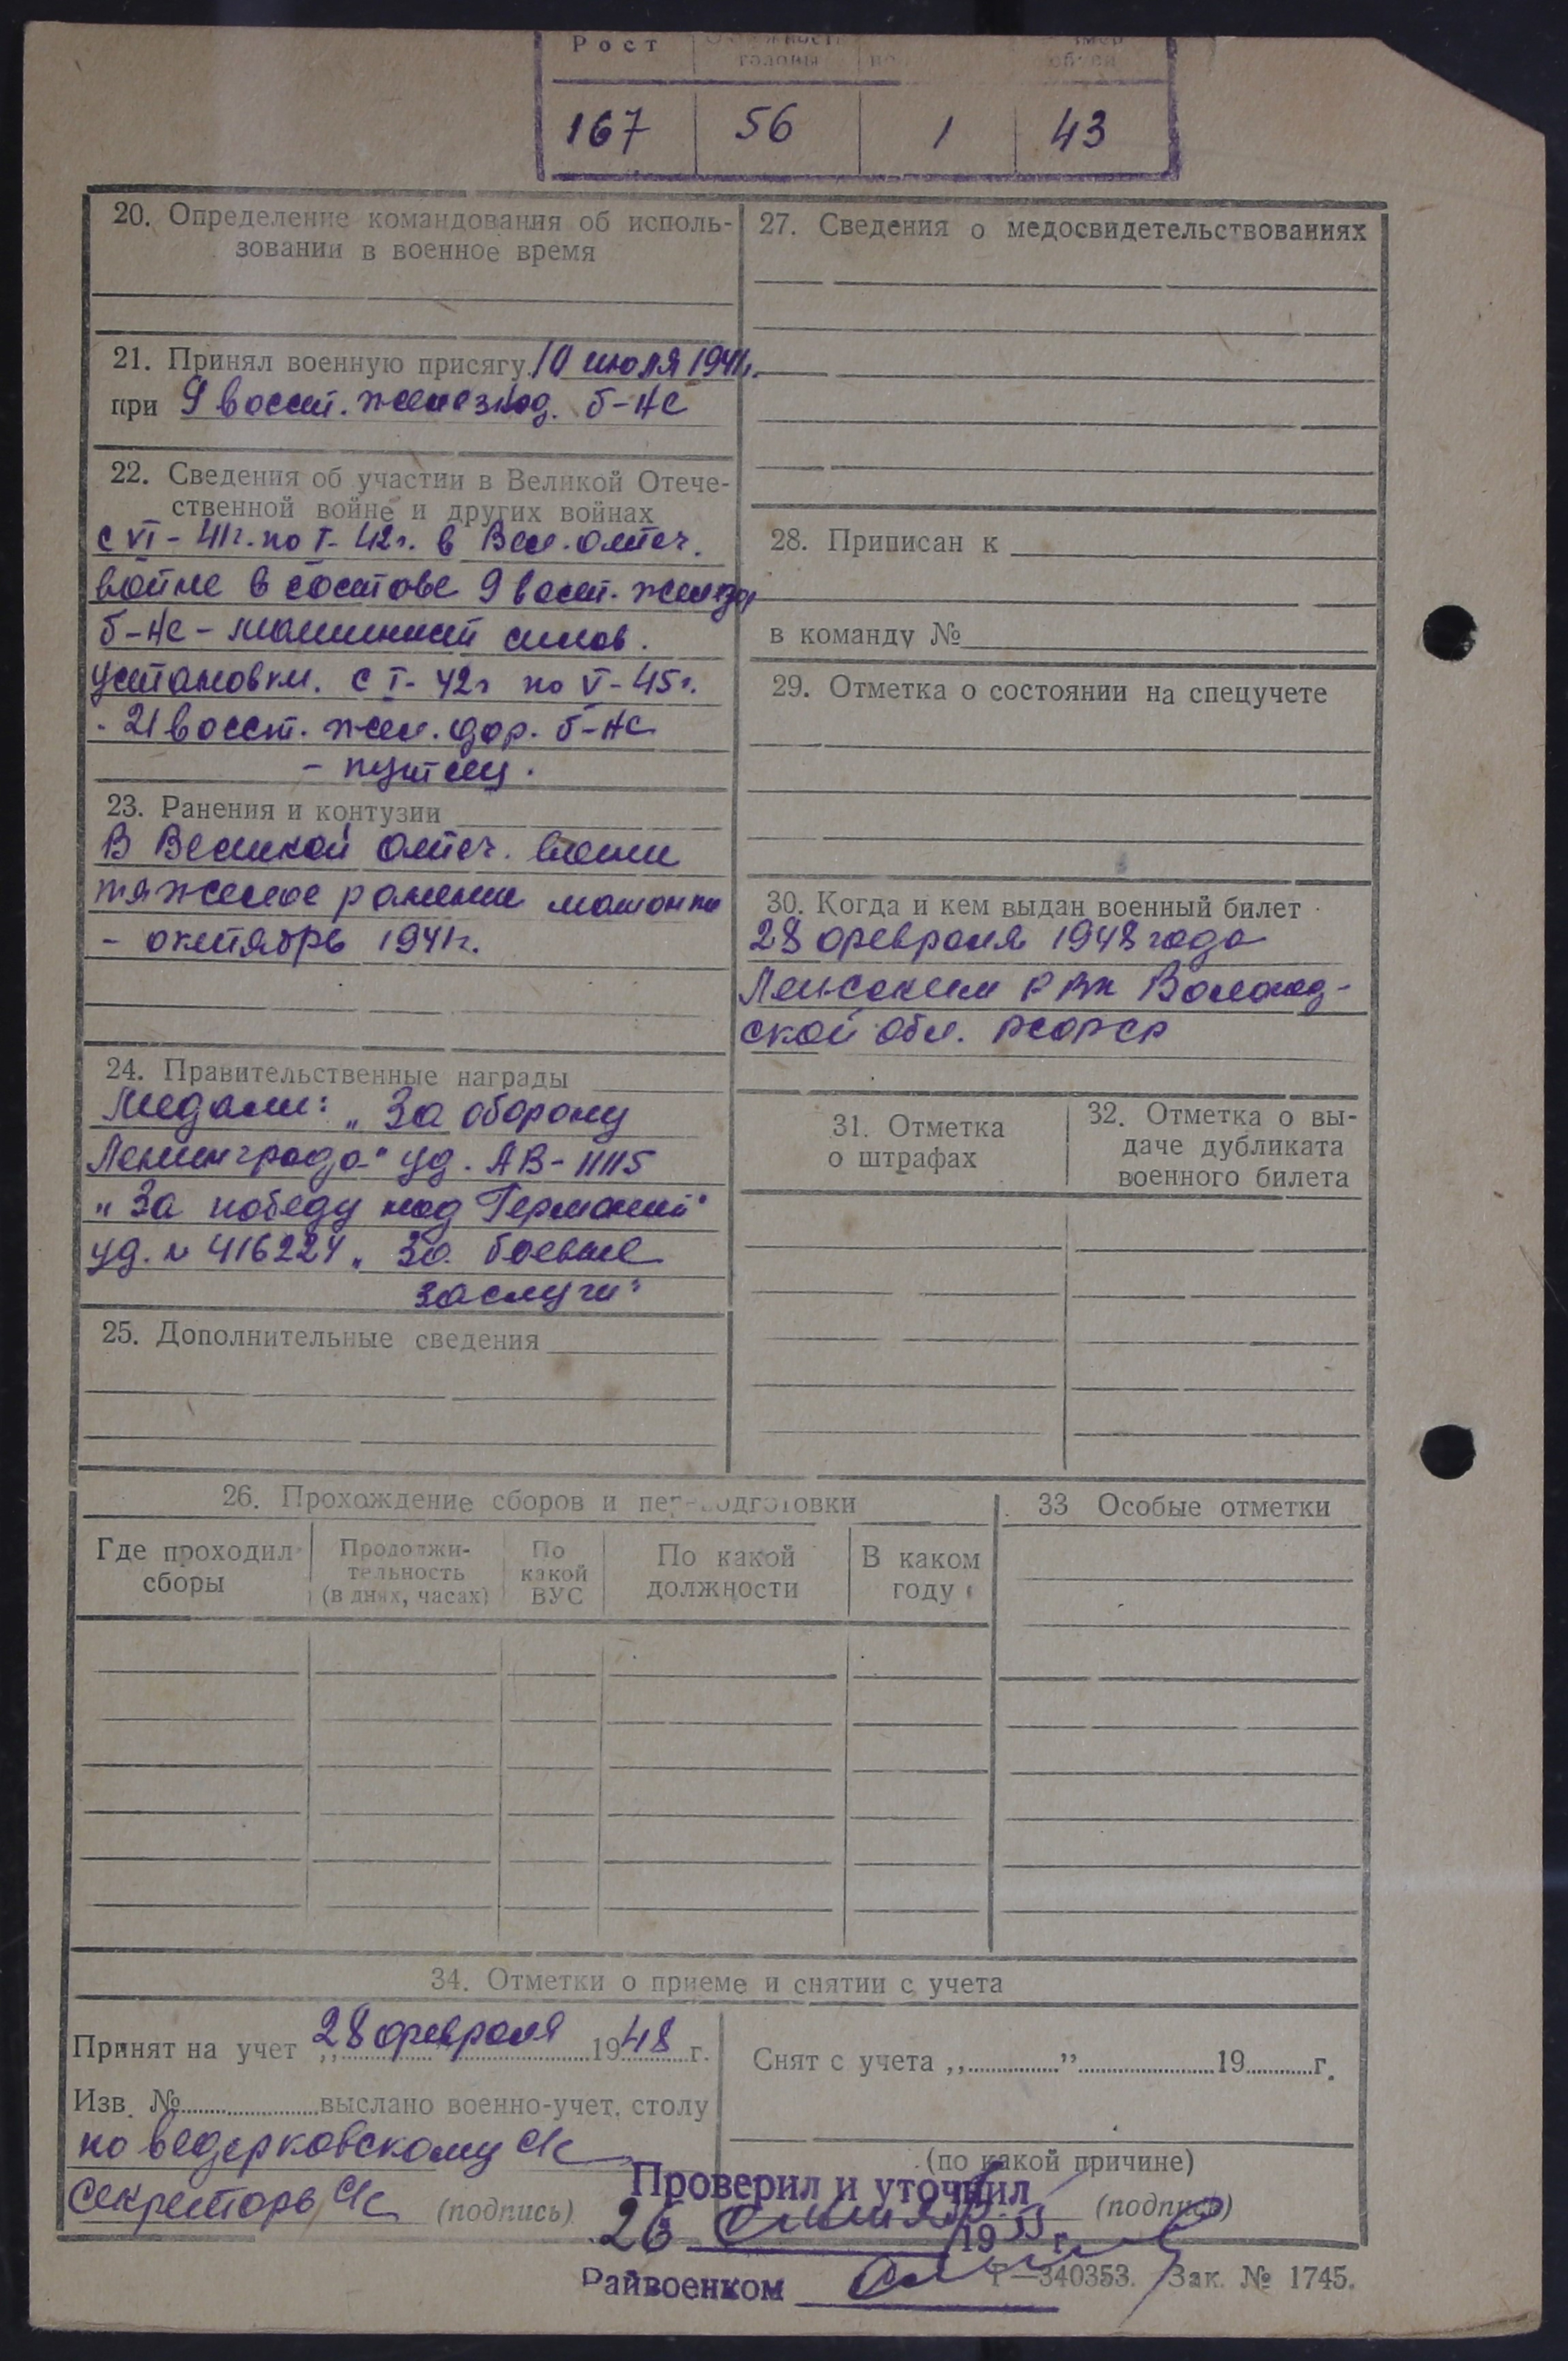 Рост
головы
167 56 1 43
20. Определение командования об исполь-
зовании в военное время
21. Принял военную присягу 10 июля 1941г.
при 9 восст. железнод. б-не
22. Сведения об участии в Великой Отече-
ственной войне и других войнах
с VI-41г. по I-42г. в Вел. отеч.
войне в составе 9 восст. железнод
б-не - машинист силов.
установки. с I-42г по V-45г.
- 21 восст. жел. дор. б-не
- путеец.
23. Ранения и контузии
В Великой отеч. войне
тяжелое ранение мошонки
- октябрь 1941г.
24. Правительственные награды
Медали: „За оборону
Ленинграда" уд. АВ-11115
„За победу над Германией"
уд. № 416224 „За боевые
заслуги"
25. Дополнительные сведения
27. Сведения о медосвидетельствованиях
28. Приписан к
в команду №
29. Отметка о состоянии на спецучете
30. Когда и кем выдан военный билет
28 февраля 1948 года
РВК Вологод-
ской обл. РСФСР
31. Отметка
о штрафах
32. Отметка о вы-
даче дубликата
военного билета
26. Прохождение сборов и переподготовки
Где проходил
сборы
Продолжи-
тельность
(в днях, часах)
По
какой
ВУС
По какой
должности
В каком
году
33 Особые отметки
34. Отметки о приеме и снятии с учета
Принят на учет „28 февраля 1948 г.
Изв. № выслано военно-учет. столу
по Ведерковскому с/с
Секретарь с/с (подпись)
Снят с учета „ ” 19 г.
(по какой причине)
(подпись)
Проверил и уточнил
26 19 г.
Райвоенком
Г—340353. Зак. № 1745.